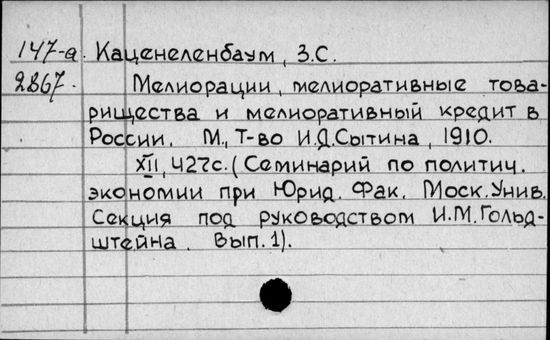 147-а. Каценеленбаум, З.С.
2867. Мелиорации, мелиоративные това-
рищества и мелиоративный кредит в
России. М., Т-во И.Д.Сытина, 1910.
XII, 427с. (Семинарий по политич.
экономии при Юрид. Фак. Моск.Унив.
Секция под руководством И.М.Гольд-
штейна. Вып.1).